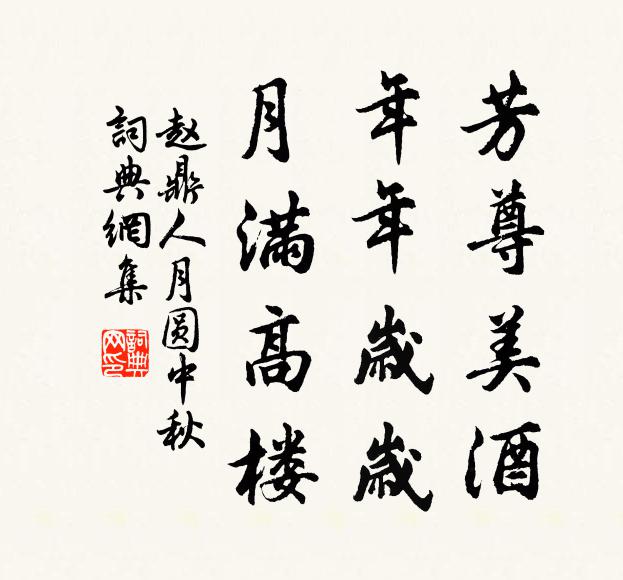 芳尊美酒
年年歲歲
月滿高楼
赵鼎人月圆中秋
詞典網集
詞典网印